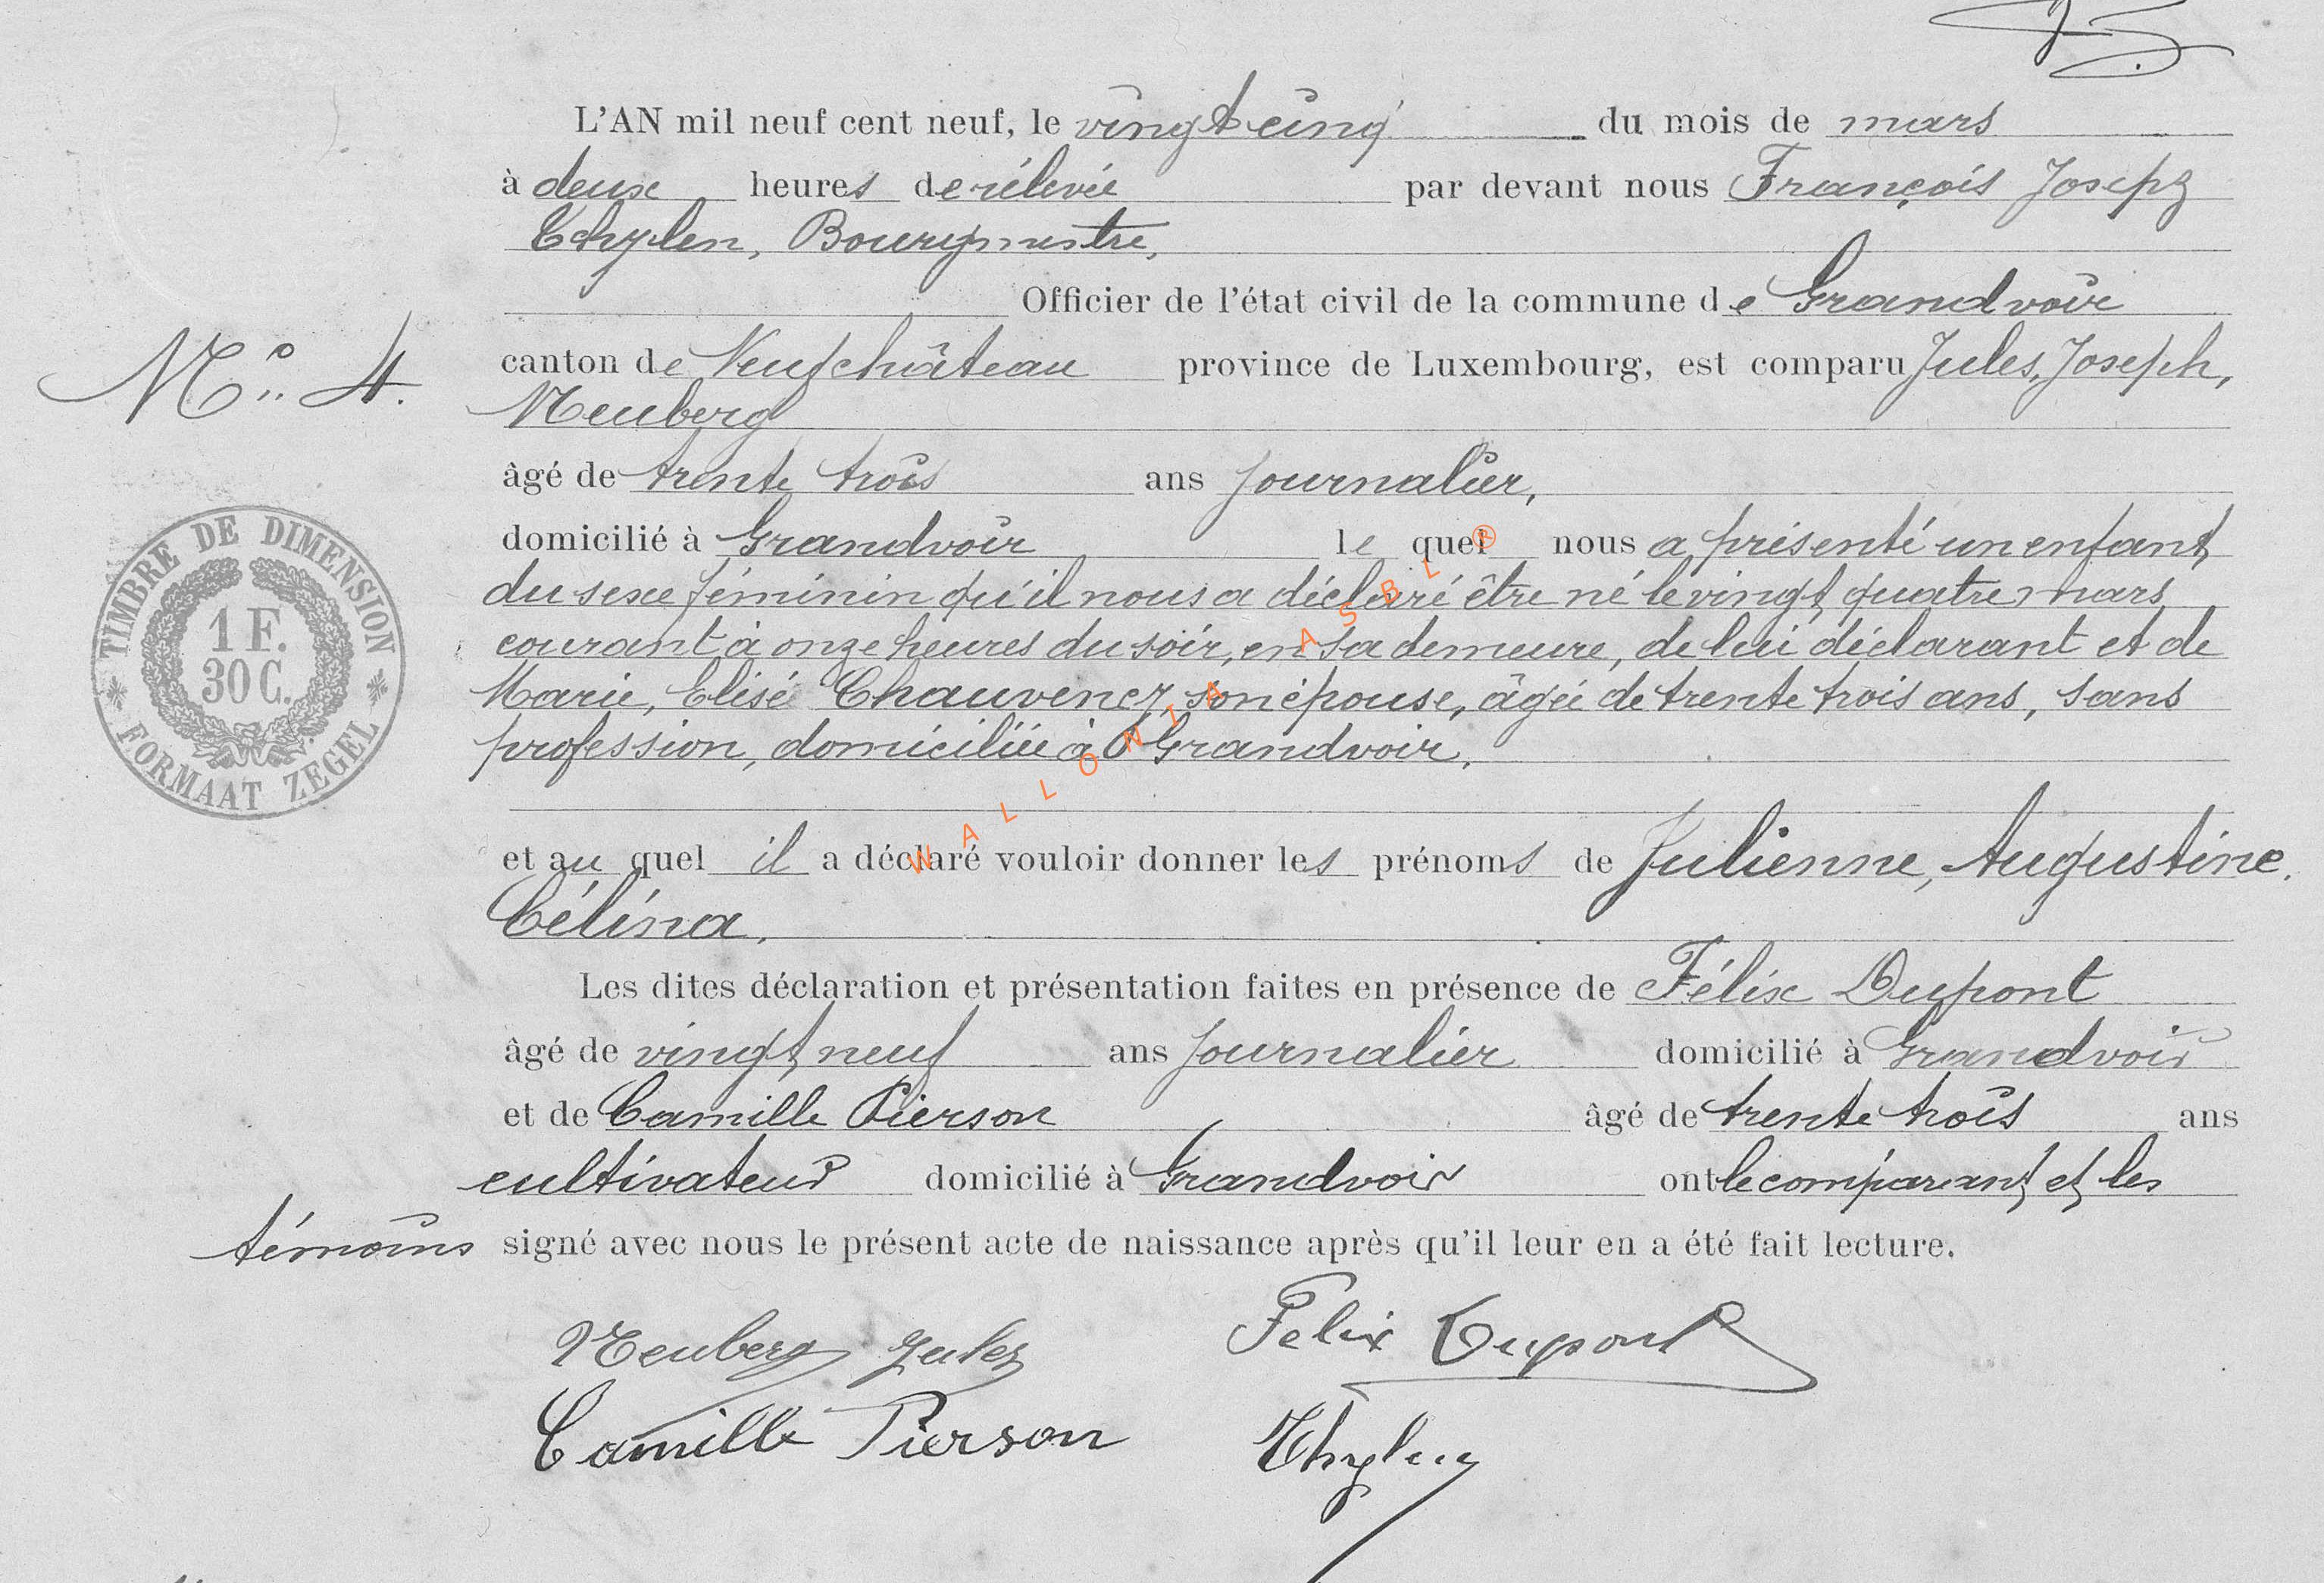 L'AN mil neuf cent neuf, le vingt cinq du mois de mars
à deux heures de rélevée par devant nous François Joseph
Thylen, Bourgmestre,
Officier de l'état civil de la commune de Grandvoir
N° 4. canton de Neufchâteau province de Luxembourg, est comparu Jules, Joseph,
Neuberg
âgé de trente trois ans Journalier,
domicilié à Grandvoir le quel nous a présenté un enfant
du sexe féminin qu'il nous a déclaré être né le vingt quatre mars
courant à onze heures du soir, en sa demeure, de lui déclarant et de
Marie, Elisé Chauvency, son épouse, âgée de trente trois ans, sans
profession, domiciliée à Grandvoir.
TIMBRE DE DIMENSION
1 F.
30 C.
FORMAAT ZEGEL
et au quel il a déclaré vouloir donner les prénoms de Julienne, Augustine.
Célina.
Les dites déclaration et présentation faites en présence de Félix Dupont
âgé de vingt neuf ans Journalier domicilié à Grandvoir
et de Camille Pierson âgé de trente trois ans
cultivateur domicilié à Grandvoir ont le comparant et les
témoins signé avec nous le présent acte de naissance après qu'il leur en a été fait lecture.
Neuberg Jules Felix Dupont
Camille Pierson Thylen
WALLONIA ASBL ®